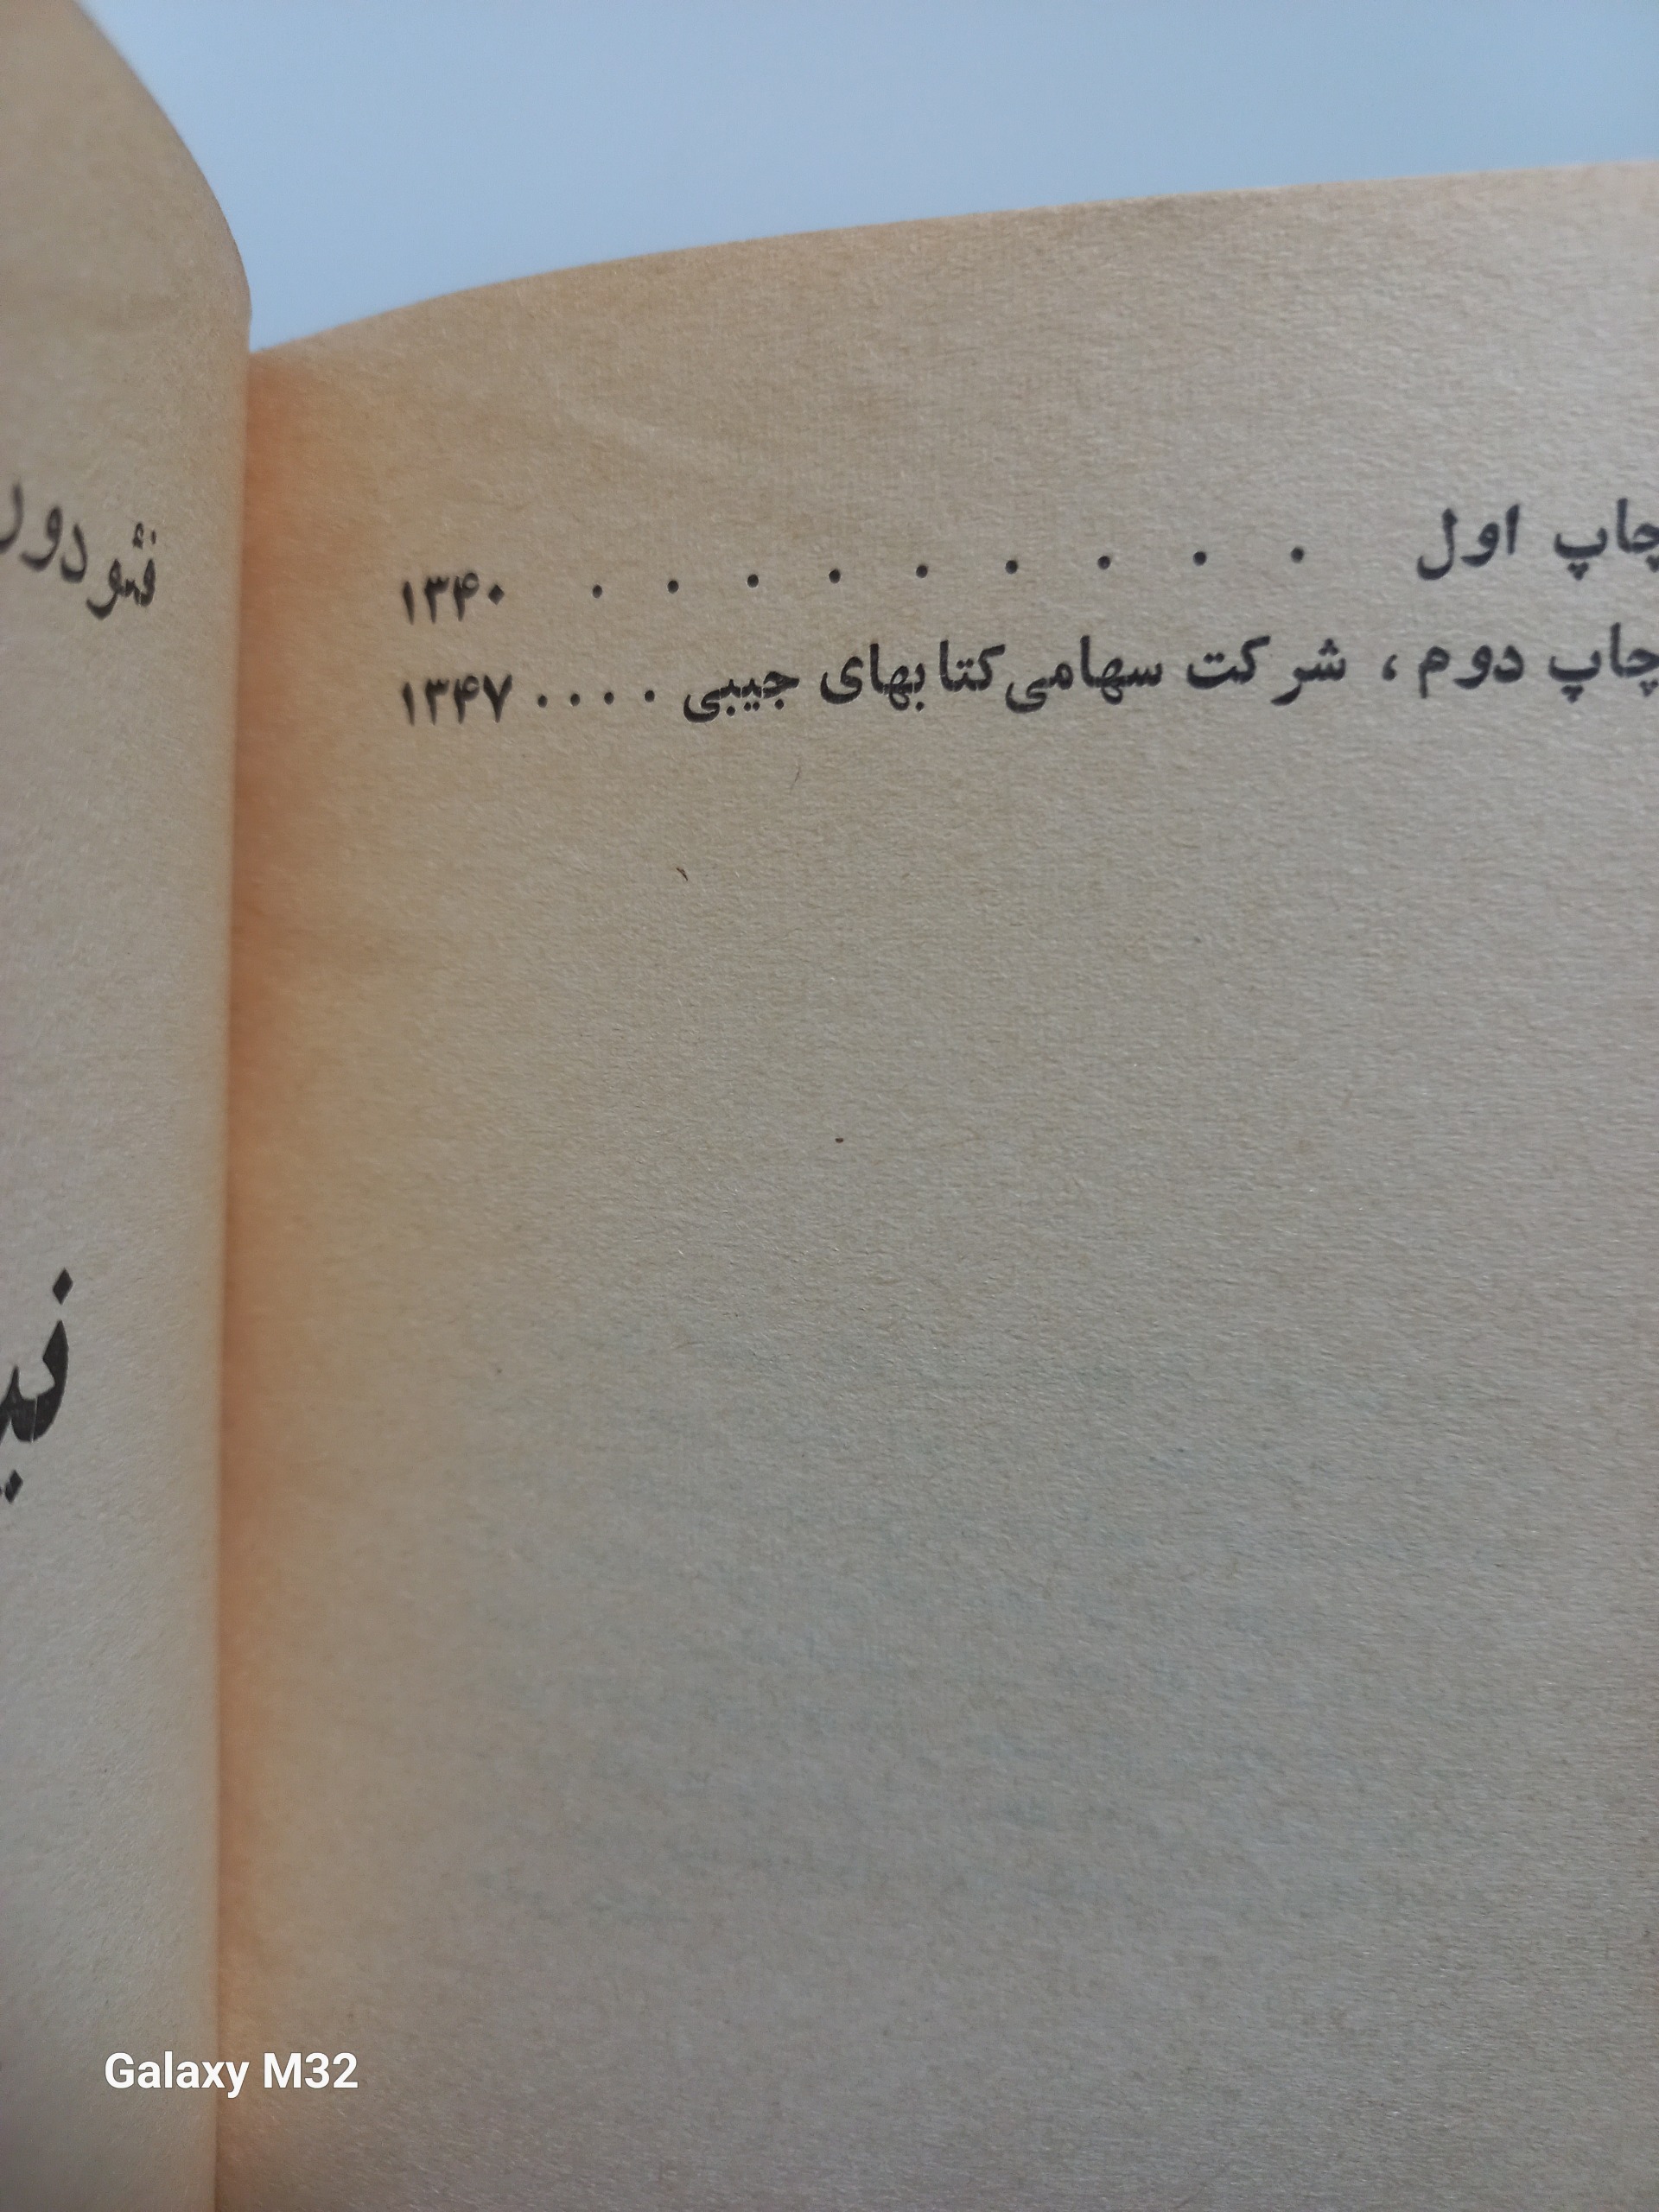 چاپ اول . . . . . . . . . ۱۳۴۰
چاپ دوم ، شرکت سهامی کتابهای جیبی . . . . ۱۳۴۷
Galaxy M32